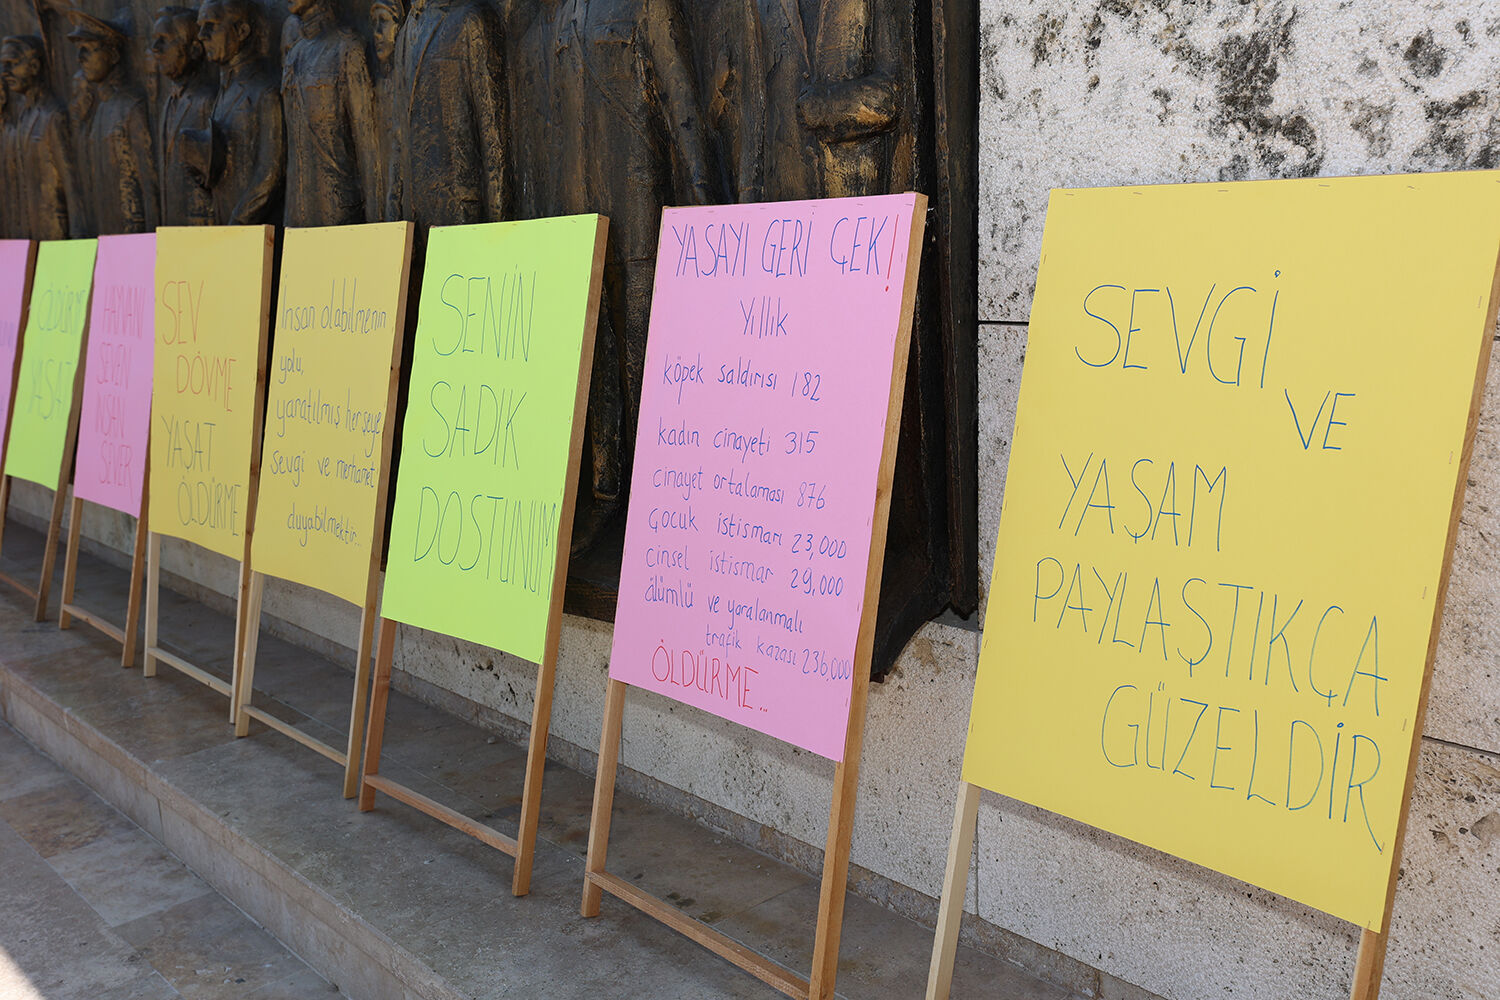 ÖLDÜRME
YAŞAT
HAYVANI
SEVEN
İNSAN
SEVER
SEV
DÖVME
YAŞAT
ÖLDÜRME
İnsan olabilmenin
yolu,
yaratılmış herşeye
sevgi ve merhamet
duyabilmektir...
SENİN
SADIK
DOSTUNUM
YASAYI GERİ ÇEK!
Yıllık
köpek saldırısı 182
kadın cinayeti 315
cinayet ortalaması 876
çocuk istismarı 23,000
cinsel istismar 29,000
ölümlü ve yaralanmalı
trafik kazası 236,000
ÖLDÜRME...
SEVGİ
VE
YAŞAM
PAYLAŞTIKÇA
GÜZELDİR